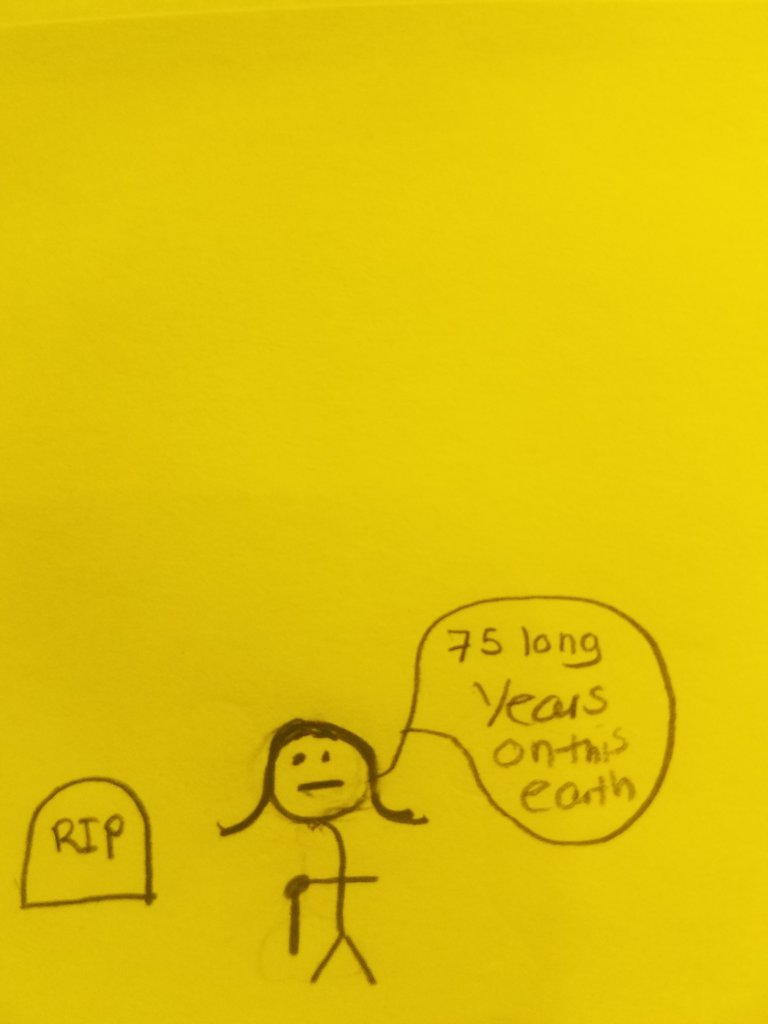 RIP
75 long
years
on this
earth